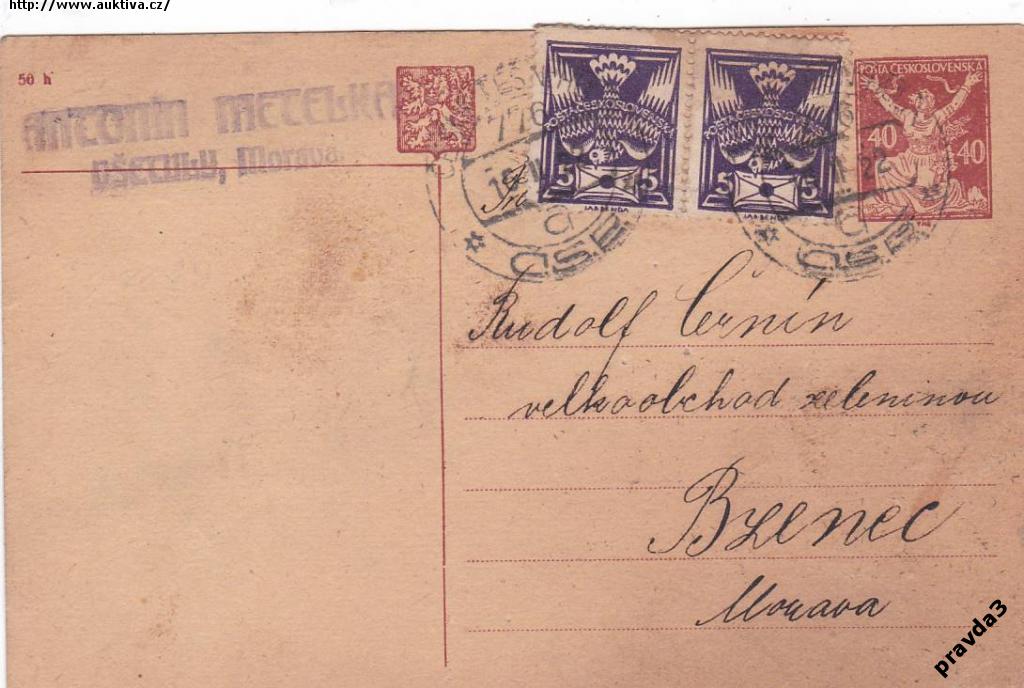 http://www.auktiva.cz/
50 h
ANTONÍN METELKA
VŠETULY, Morava.
POŠTA ČESKOSLOVENSKÁ
40 40
5 5
JAK BENDA
5 5
JAK BENDA
ČSP
ČSP
Rudolf Černín
velkoobchod zeleninou
Bzenec
Morava
pravda3